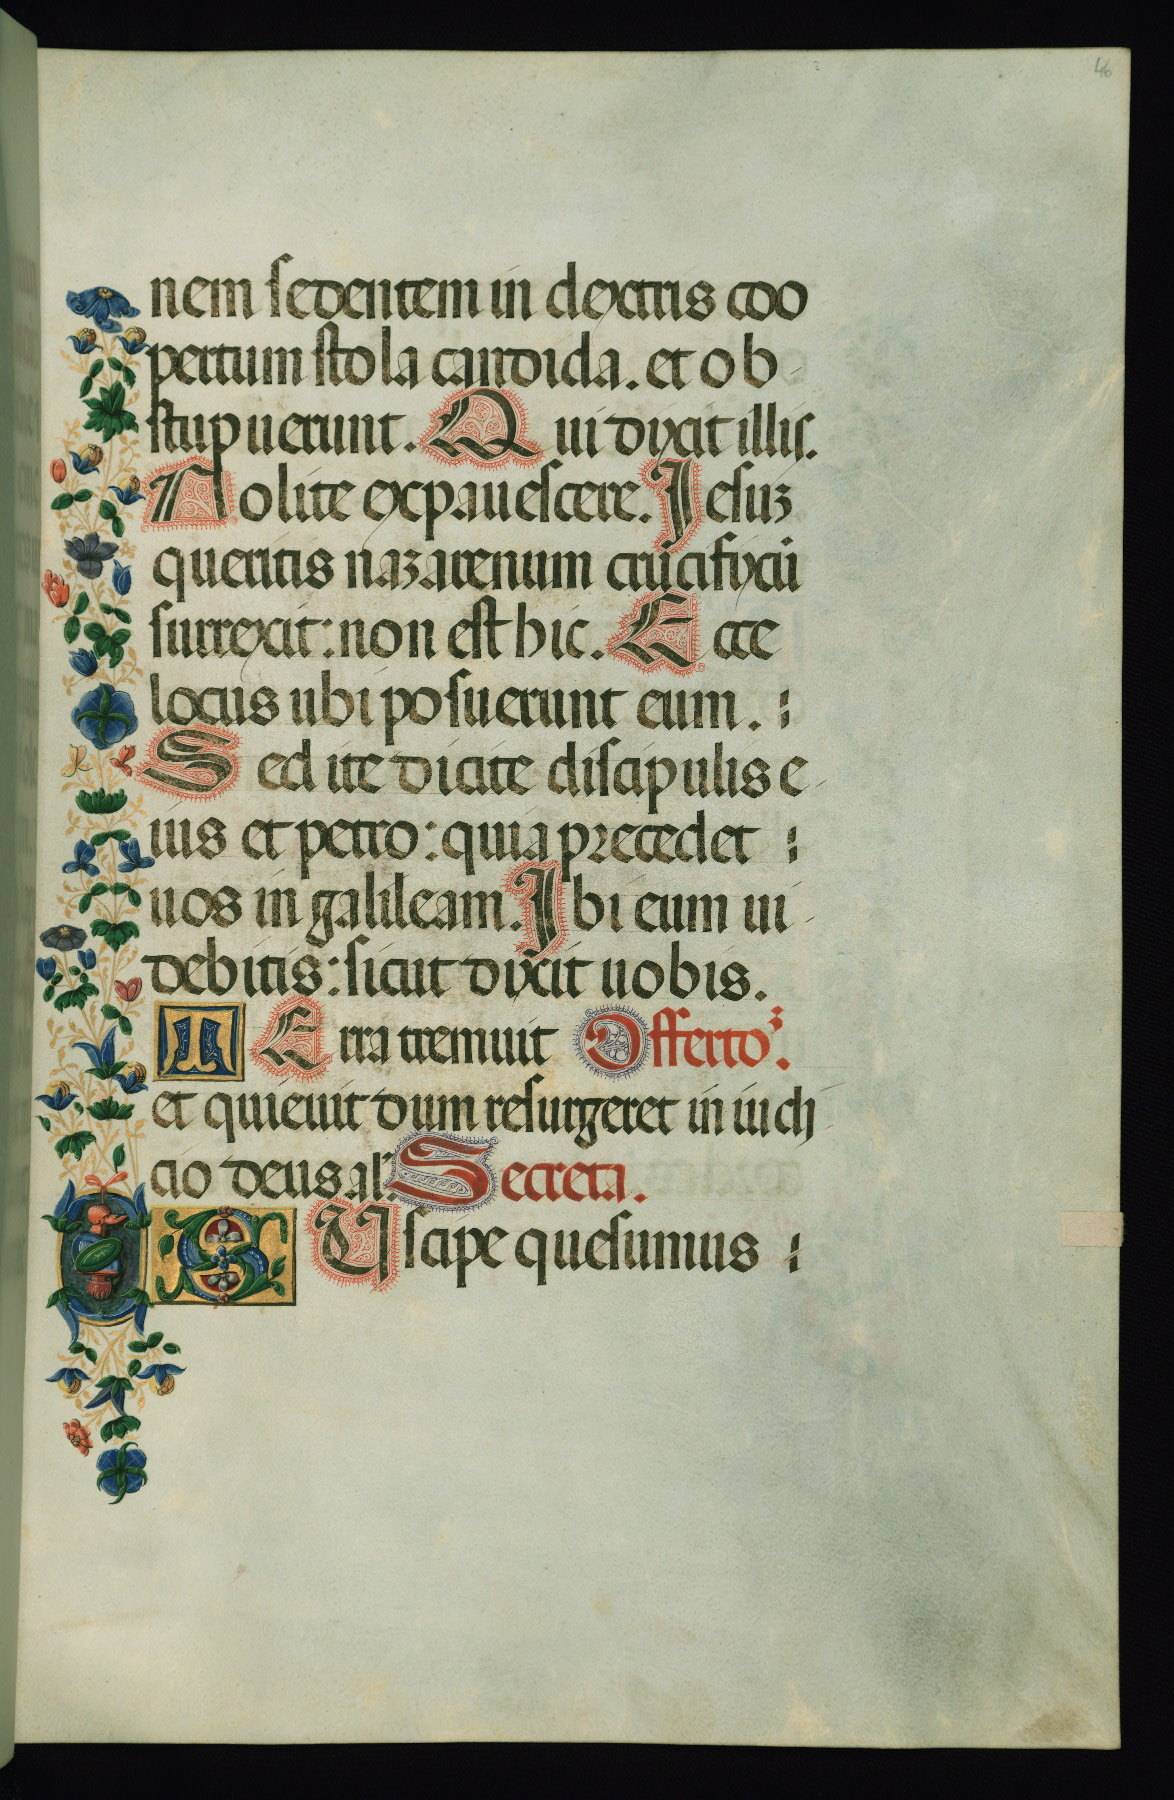 46
nem sedentem in dextris coo
pertum stola candida. et ob
stupuerunt. Qui dixit illis.
Nolite expauescere. Iesuz
queritis nazarenum crucifixũ
surrexit: non est hic. Ecce
locus ubi posuerunt eum.
Sed ite dicite discipulis e
ius et petro: quia precedet
uos in galileam. Ibi eum ui
debitis: sicut dixit uobis.
TErra tremuit Offertoꝝ.
et quieuit dum resurgeret in iudi
cio deus al'. Secreta.
SUscipe quesumus